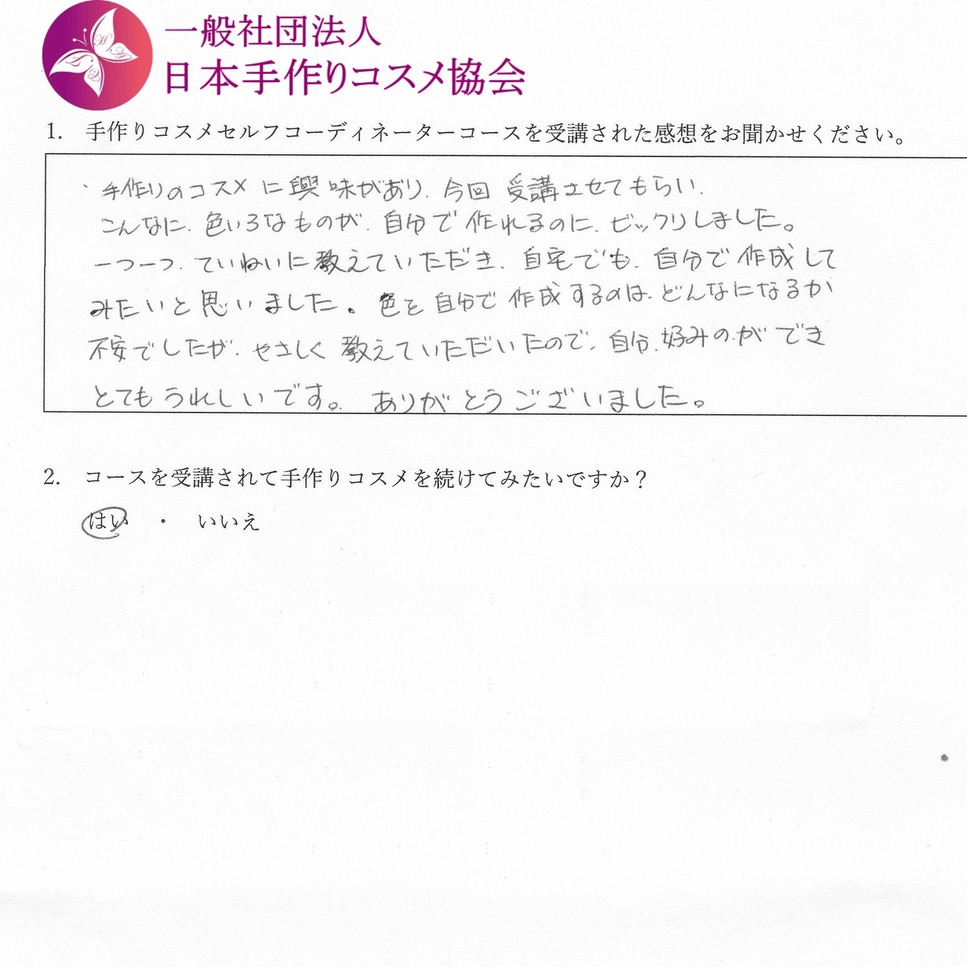 一般社団法人
日本手作りコスメ協会
1. 手作りコスメセルフコーディネーターコースを受講された感想をお聞かせください。
・手作りのコスメに興味があり、今回受講させてもらい、
こんなに、色いろなものが、自分で作れるのに、ビックリしました。
一つ一つ、ていねいに教えていただき、自宅でも、自分で作成して
みたいと思いました。色を自分で作成するのは、どんなになるか
不安でしたが、やさしく教えていただいたので、自分好みのができ
とてもうれしいです。ありがとうございました。
2. コースを受講されて手作りコスメを続けてみたいですか？
はい ・ いいえ